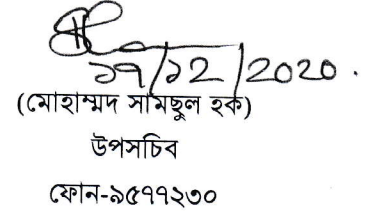 ১৭/১২/2020.
(মোহাম্মদ সামছুল হক)
উপসচিব
ফোন-৯৫৭৭২৩০